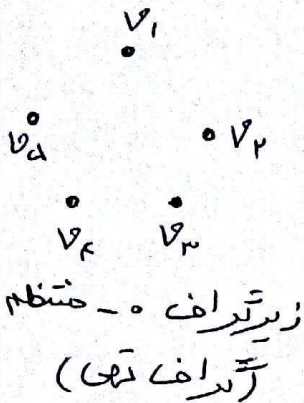 V۱
V۵
V۲
V۴
V۳
زیرگراف ۰ - منتظم
(گراف تهی)